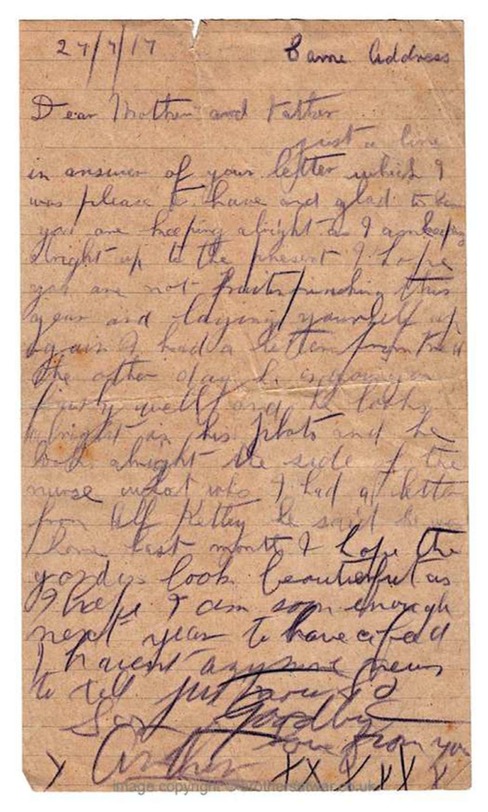 27/7/17
Same Address
Dear Mother and Father
just a line
in answer of your letter which I
was please to have and glad to hear
you are keeping alright as I am keeping
alright up to the present I hope
you are not this
year and laying yourself up
again I had a letter from
the other day he is going on
fairly well and he looks
alright in his photo and he
look alright the side of the
nurse what who I had a letter
from Alf Kettey he said he was
home last month I hope the
look beautiful as
I hope I am soon enough
next year to have a
I havent any more news
to tell just now so
Goodbye
love from your
Son Arthur
xx xxx x
image copyright